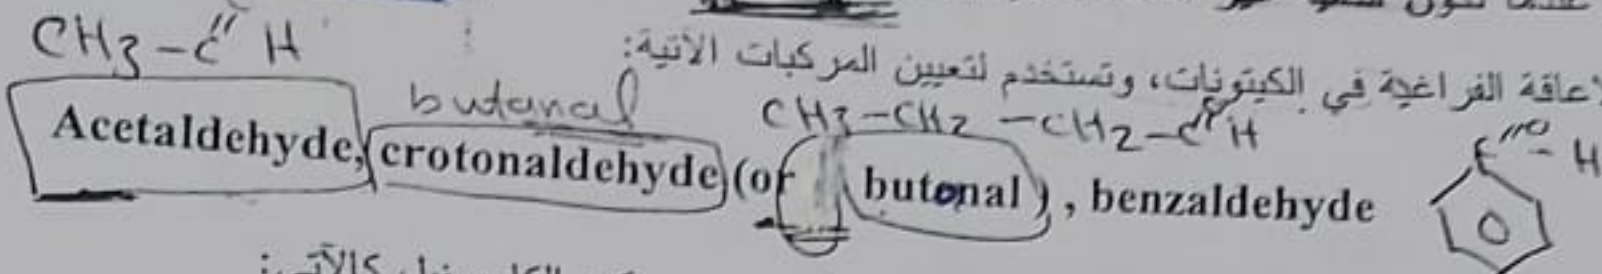 CH3-C" H
الإعاقة الفراغية في الكيتونات، وتستخدم لتعيين المركبات الآتية:
butanal
CH3-CH2-CH2-C"H
Acetaldehyde, crotonaldehyde (or butonal), benzaldehyde
H
كالآتي: